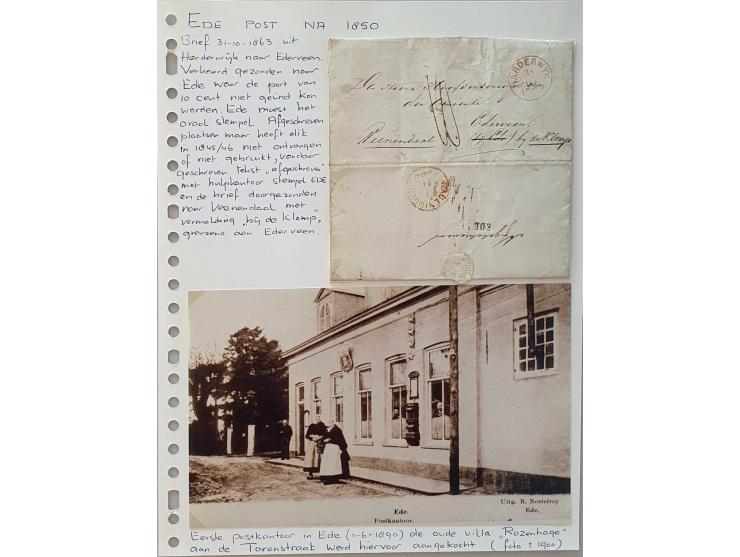 EDE POST NA 1850
Brief 31-10-1863 uit
Harderwijk naar Ederveen.
Verkeerd gezonden naar
Ede waar de port van
10 cent niet geïnd kon
worden. Ede moest het
ovaal stempel Afgeschreven
plaatsen maar heeft dit
in 1845/46 niet ontvangen
of niet gebruikt, vandaar
geschreven tekst „afgeschreven"
met hulpkantoor stempel EDE
en de brief doorgezonden
naar Veenendaal met
vermelding „bij de Klomp„
grenzend aan Ederveen.
HARDERWYK
de Gemeente
Ederveen
Veenendaal bij de Klomp
EDE
Afgeschreven
Uitg. R. Nestelroy
Ede,
Ede.
Postkantoor.
Eerste postkantoor in Ede (1-6-1890) de oude villa „Rozenhage"
aan de Torenstraat werd hiervoor aangekocht (foto ± 1900)